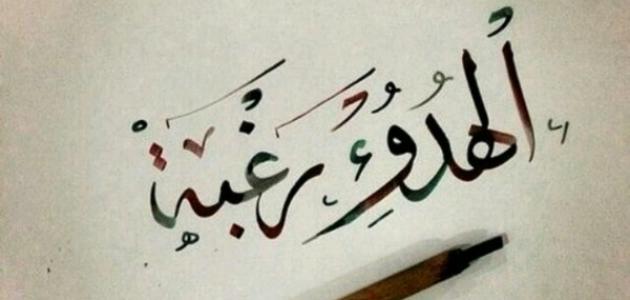 ألهدوُء رغبة